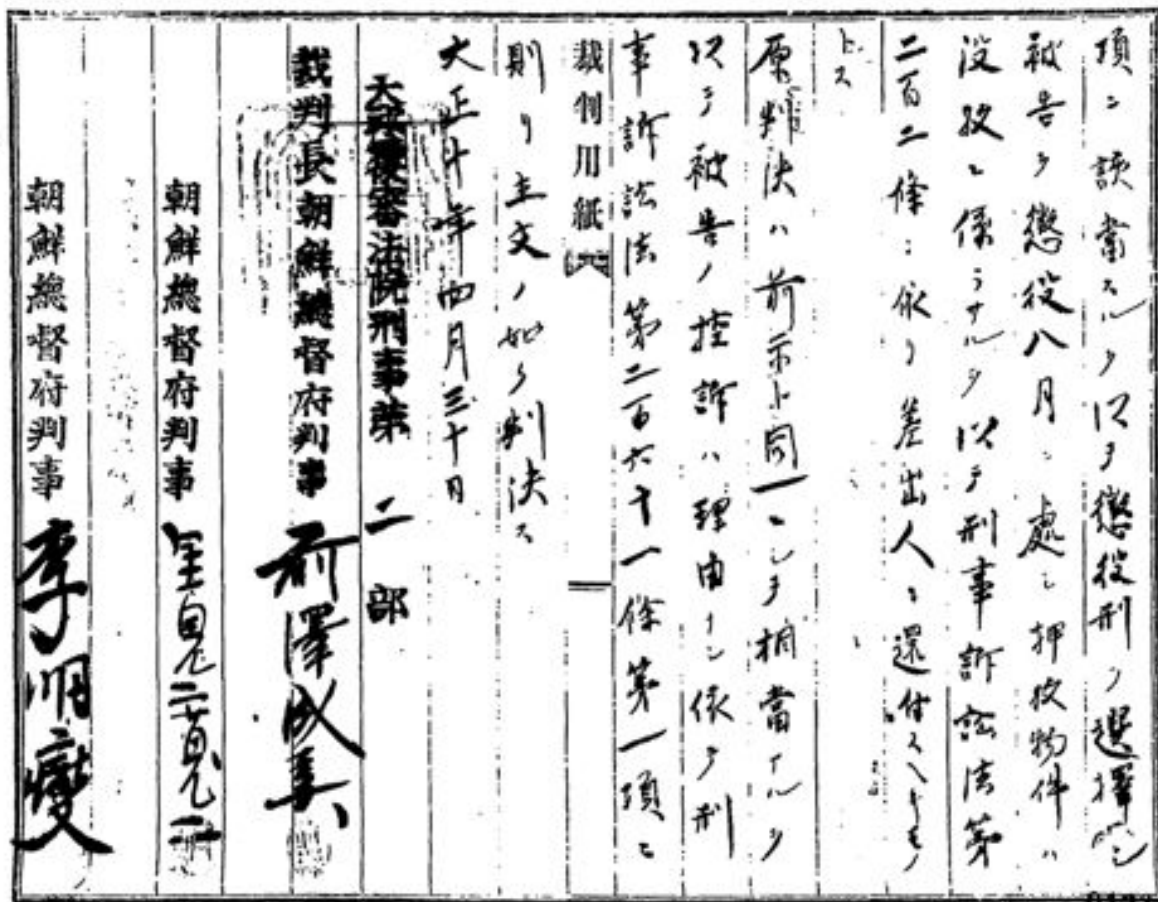 項ニ該當スルヲ以テ懲役刑ヲ選擇シ
被告ヲ懲役八月ニ處シ押收物件ハ
没收ニ係ラサルヲ以テ刑事訴訟法第
二百二條ニ依リ差出人ニ還付スヘキモノ
トス
原判決ハ前示ト同一ニシテ相當ナルヲ
以テ被告ノ控訴ハ理由ナシ依テ刑
事訴訟法第二百六十一條第一項ニ
裁判用紙
則リ主文ノ如ク判決ス
大正十年四月三十日
大邱覆審法院刑事第二部
裁判長朝鮮總督府判事 前澤成美
朝鮮總督府判事
朝鮮總督府判事 李明燮